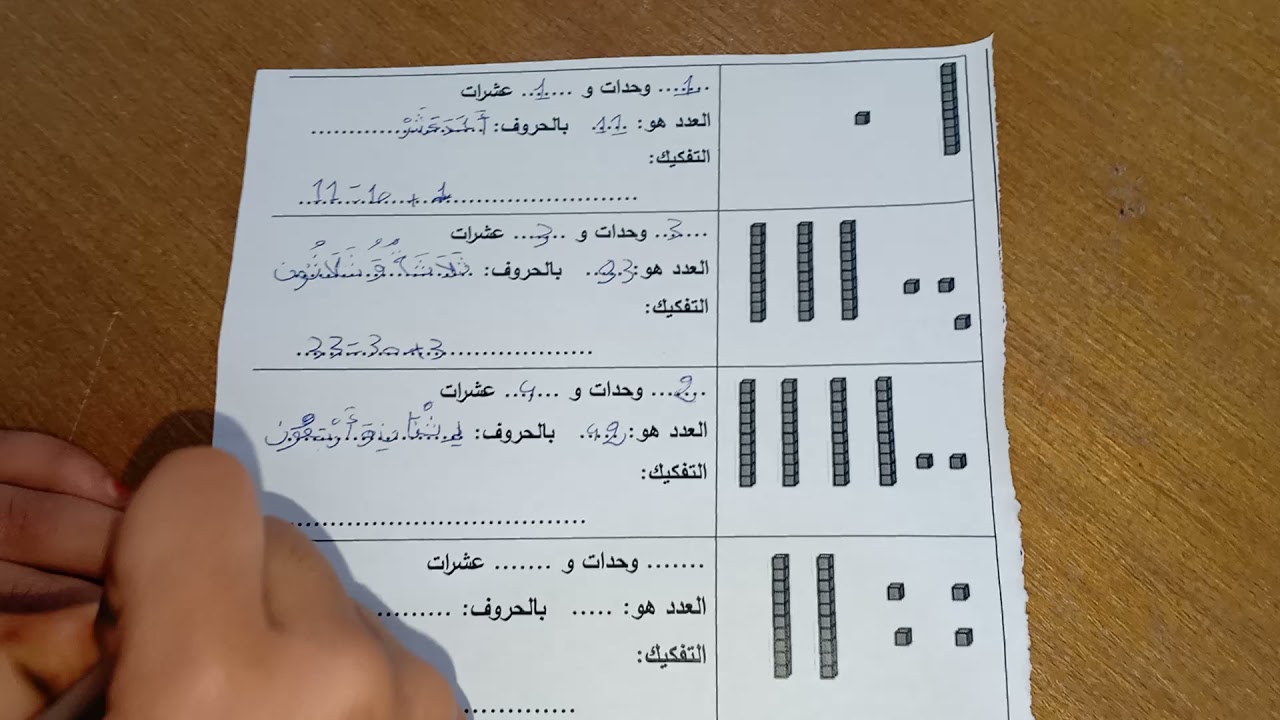 ..1.... وحدات و ....1.. عشرات
العدد هو: .11. بالحروف: أَحَدَ عَشَرَ............
التفكيك:
11=10+1
...3.. وحدات و ...3... عشرات
العدد هو: 33... بالحروف: ثَلَاثَةُ وَ ثَلَاثُونَ
التفكيك:
33=30+3
..2.... وحدات و ...4... عشرات
العدد هو: 42.. بالحروف:
التفكيك:
....... وحدات و ....... عشرات
العدد هو: ..... بالحروف: .........
التفكيك: